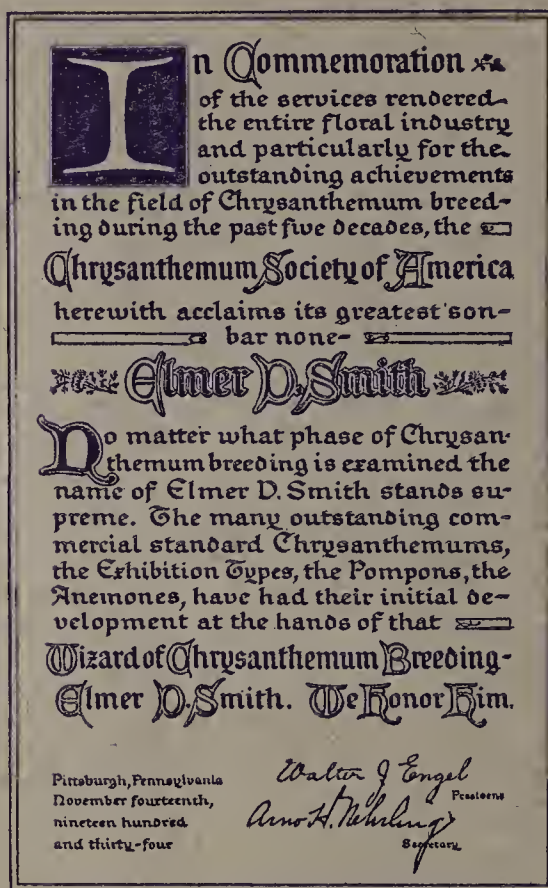 In Commemoration
of the services rendered
the entire floral industry
and particularly for the
outstanding achievements
in the field of Chrysanthemum breed-
ing during the past five decades, the
Chrysanthemum Society of America
herewith acclaims its greatest son-
bar none-
Elmer D. Smith
No matter what phase of Chrysan-
themum breeding is examined the
name of Elmer D. Smith stands su-
preme. The many outstanding com-
mercial standard Chrysanthemums,
the Exhibition Types, the Pompons, the
Anemones, have had their initial de-
velopment at the hands of that
Wizard of Chrysanthemum Breeding-
Elmer D. Smith. We Honor Him.
Pittsburgh, Pennsylvania
November fourteenth,
nineteen hundred
and thirty-four
Walter J Engel
President
Arno H. Nehrling
Secretary